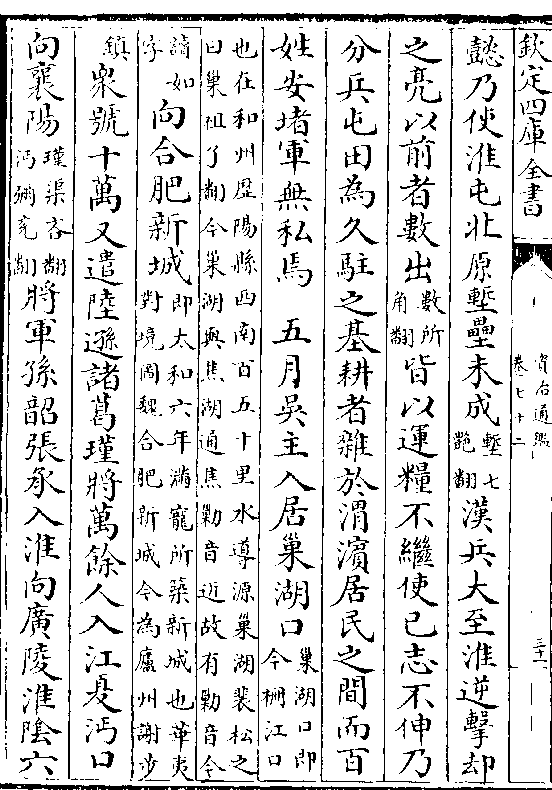 欽定四庫全書
資治通鑑
卷七十二
三十一
懿乃使淮屯北原塹壘未成塹七艶翻漢兵大至淮逆擊却
之亮以前者數出數所角翻皆以運糧不繼使己志不伸乃
分兵屯田為久駐之基耕者雜於渭濱居民之間而百
姓安堵軍無私焉　五月吳主入居巢湖口巢湖口即今柵江口
也在和州歷陽縣西南百五十里水導源巢湖裴松之
曰巢祖了翻今巢湖與焦湖通焦勦音近故有勦音今
讀如字向合肥新城即太和六年滿寵所築新城也華夷對境圖魏合肥新城今為廬州謝步
鎮衆號十萬又遣陸遜諸葛瑾將萬餘人入江夏沔口
向襄陽瑾渠吝翻沔彌兖翻將軍孫韶張承入淮向廣陵淮陰六